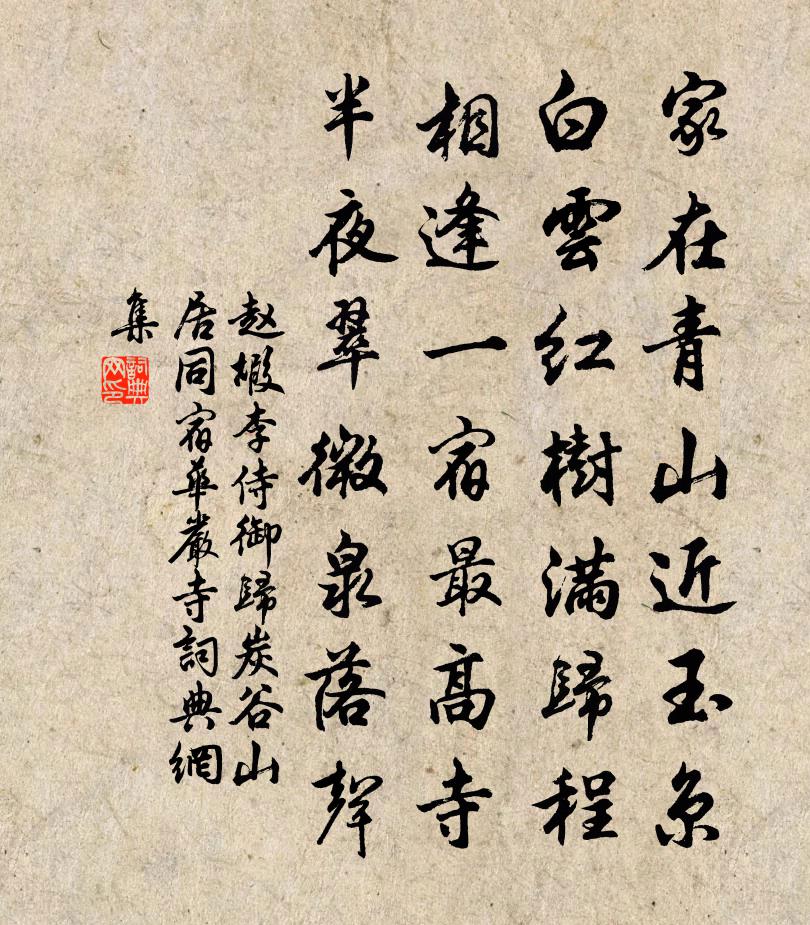 家在青山近玉京
白雲紅樹滿歸程
相逢一宿最高寺
半夜翠微泉落聲
赵嘏李侍御歸炭谷山
居同宿華嚴寺詞典網
集
詞典網印